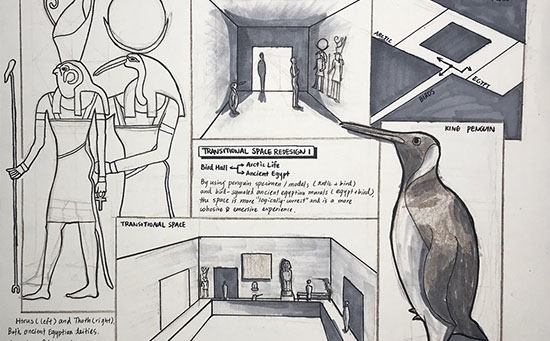 ARCTIC
EGYPT
BIRDS
TRANSITIONAL SPACE REDESIGN 1
Bird Hall
Arctic Life
Ancient Egypt
By using penguin specimen / models (arctic + bird)
and bird-symboled ancient egyptian murals (egypt + bird)
the space is more "logically-correct" and is a more
cohosive & emersive experience.
KING PENGUIN
TRANSITIONAL SPACE
Horus (left) and Thoth (right)
Both ancient Egyptian deities.